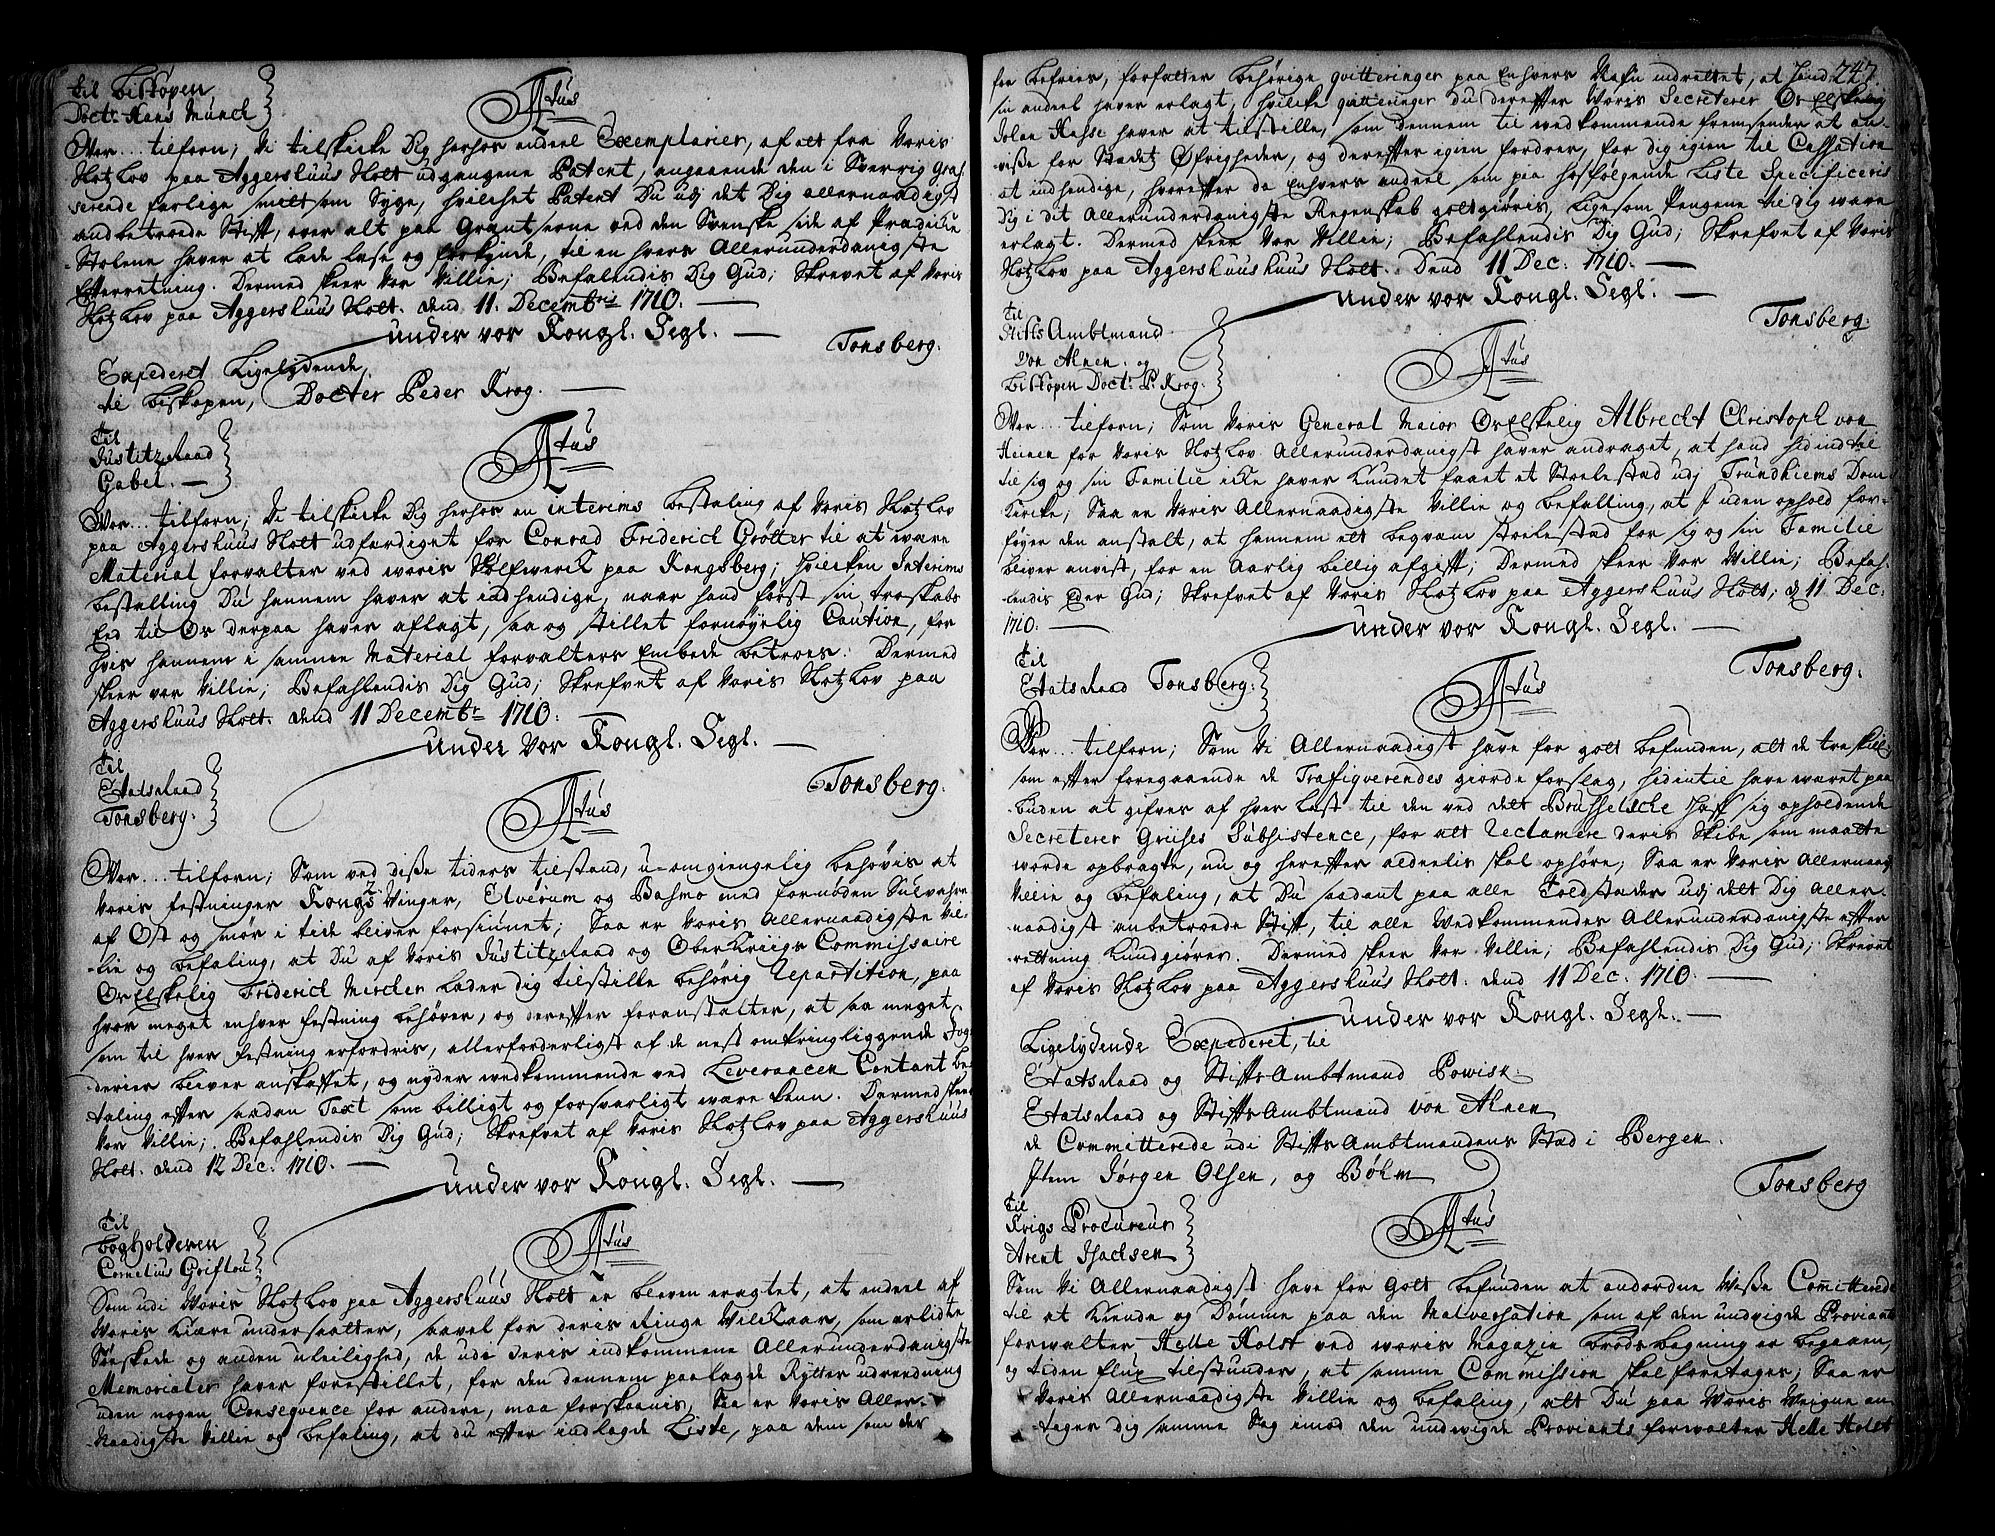 Til Biskopen
Doct: Hans Münch
Atus
Vor... tilforn; Vi tilskicke Dig herhos endeel Exemplarier, af ett fra Voris
Slotzlov paa Aggershuus Slott udgangene Patent, angaaende den i Sverrig gras-
serende farlige smitsom Syge, hvilchet Patent Du udj det Dig allernaadigst
andbetroede Stift, over alt paa Grentserne ved den Svenske side af Prædicke
Stolene haver at lade læse og forkynde, til en hvers Allerunderdanigste
Efterretning. Dermed skeer Vor Villie; Befalendis Dig Gud; Skrevet af Voris
Slotzlov paa Aggershuus Slott. dend 11. Decembris 1710.
under vor Kongl. Segl.
Tonsberg.
Expederet Ligelydende,
til Biskopen, Docter Peder Krog.
Til
Justitzraad
Gabel.
Atus
Vor... tilforn; Vi tilskicke Dig herhos en interims bestaling af Voris Slotzlov
paa Aggershuus Slott udfærdiget for Conrad Friderich Grötter til at være
Material forvalter ved voris Sölfwerck paa Kongsberg; hvilcken Interims
bestalling Du hannem haver at indhendige, naar hand först sin troskabs
Eed til Os derpaa haver aflagt, saa og stillet fornøyelig Caution, for
hvis hannem i samme Material forvalters Embede betroes. Dermed
skeer vor Villie; Befahlendis Dig Gud; Skrefvet af Voris Slotzlov paa
Aggershuus Slott. dend 11 Decembr 1710.
under vor Kongl. Segl.
Tonsberg.
Til
Etatsraad
Tonsberg.
Atus
Vor... tilforn; Som ved diße tiders tilstand, u-omgiengelig behøvis at
Voris festninger Kongs Vinger, Elverum og Basmo med fornøden
af Ost og smör i tide bliver forsiunet; Saa er Voris Allernaadigste Vil-
lie og befaling, at Du af Voris Justitzraad og Ober Kriigs Commissaire
Os Elskelig Friderich Mercker lader dig tilstille behörig Repartition, paa
hvor meget enhver festning behöver, og derefter foranstalter, at saa meget
som til hver festning erfordris, allerforderligst af de nest omkringliggende Fog-
derier bliver anskaffet, og nyder vedkommende ved Leverancen Contant be-
taling efter saadan Taxt som billigt og forsvarligt være kand. Dermed skeer
Vor Villie; Befahlendis Dig Gud; Skrefvet af Voris Slotzlov paa Aggershuus
Slott. dend 12 Dec. 1710.
under vor Kongl. Segl.
Til
Bogholderen
Cornelius
Atus
Som udi Voris Slotzlov paa Aggershuus Slott er bleven eragtet, at endeel af
Voris kiære undersaatter, saavel for deris ringe Vilckaar, som erlidte
Söeskade og anden uleilighed, de udi deris indkommene Allerunderdanigste
Memorialer haver forestillet, for den dennem paalagde Rytter udredning
uden nogen Conseqvence for andere, maa forskaanis; Saa er Voris Aller-
naadigste Villie og befaling, at du efter indlagde Liste, paa dem som der
247.
for befries, forfatter behörige qvitteringer paa Enhvers Nafn indrettet, at hand
sin andeel haver erlagt, hvilcke qvitteringer du derefter Voris Secreterer Os Elskelig
Johan Hasse haver at tilstille, som dennem til vedkommende fremsender at an-
viße for Stedetz Øfrigheder, og derefter igien fordrer, for dig igien til Cassation
at indhendige, hvorefter da Enhvers andeel som paa hosfølgende Liste Specificeris
Dig i dit Allerunderdanigste Regenskab gotgiøris, ligesom Pengene til Dig vare
erlagt. Dermed skeer Vor Villie; Befahlendis Dig Gud; Skrefvet af Voris
Slotzlov paa Aggershuushuus Slott. Dend 11 Dec. 1710.
under vor Kongl. Segl.
Tonsberg.
Til
Stifts Ambtmand
Von Ahnen. og
Biskopen Doct: P. Krog.
Atus
Vor... tilforn; Som Voris General Maior Os Elskelig Albrecht Christoph von
Heinen for Voris Slotzlov Allerunderdanigst haver andraget, at hand hid indtil
til sig og sin Familie icke haver kundet faaet et Stoelestad udj Trundhiems Dom
Kircke; Saa er Voris Allernaadigste Villie og befalling, at I uden ophold for-
föyer den anstalt, at hannem ett beqvem stoelestad for sig og sin Familie
bliver anvist, for en Aarlig billig afgift; Dermed skeer Vor Villie; Befah-
lendis Eder Gud; Skrefvet af Voris Slotzlov paa Aggershuus Slott; d 11 Dec:
1710.
under vor Kongl. Segl.
Tonsberg.
Til
Etatsraad Tonsberg.
Atus
Vor... tilforn; Som Vi Allernaadigst have for gott befunden, att de tre skill:
som efter foregaaende de Trafiqverendes giorde forslag, hidintil have været paa-
buden at gifves af hver Lest til den ved dett Brusselsche Hoff sig opholdende
Secreterer Gruses Subsistence, for att reclamere deris Skibe som maatte
worde opbragte, nu og herefter aldeelis skal ophøre; Saa er Voris Allernaad
Villie og befaling, at Du saadant paa alle Toldstæder udj dett Dig Aller-
naadigst anbetroede Stift, til alle Vedkommendes Allerunderdanigste efter-
rettning kundgiører. Dermed skeer Vor Villie; Befahlendis Dig Gud; Skrevet
af Voris Slotzlov paa Aggershuus Slott. dend 11 Dec. 1710.
under vor Kongl. Segl.
Ligelydende Expederet, til
Etatsraad og Stifts Ambtmand Powisk.
Etatsraad og Stifts Ambtmand von Ahnen
de Committerede udi Stifts Ambtmandens Stæd i Bergen.
Item Jørgen Olsen, og Böhm
Tonsberg
Til
Krigs Procureur
Arent Isachsen
Atus
Som Vi Allernaadigst have for Gott befunden at andordne viße Committerede
til at kiende og Dömme paa den Malversation som af den undvigde Proviants
forwalter Helle Holst ved voris Magazin brøds bagning er begaaen,
og tiden flux tilstunder, at samme Commission skal foretages; Saa er
Voris Allernaadigste Villie og befaling, att Du paa Voris Veigne an-
tager dig samme Sag imod den undwigde Proviants forwalter Helle Holst